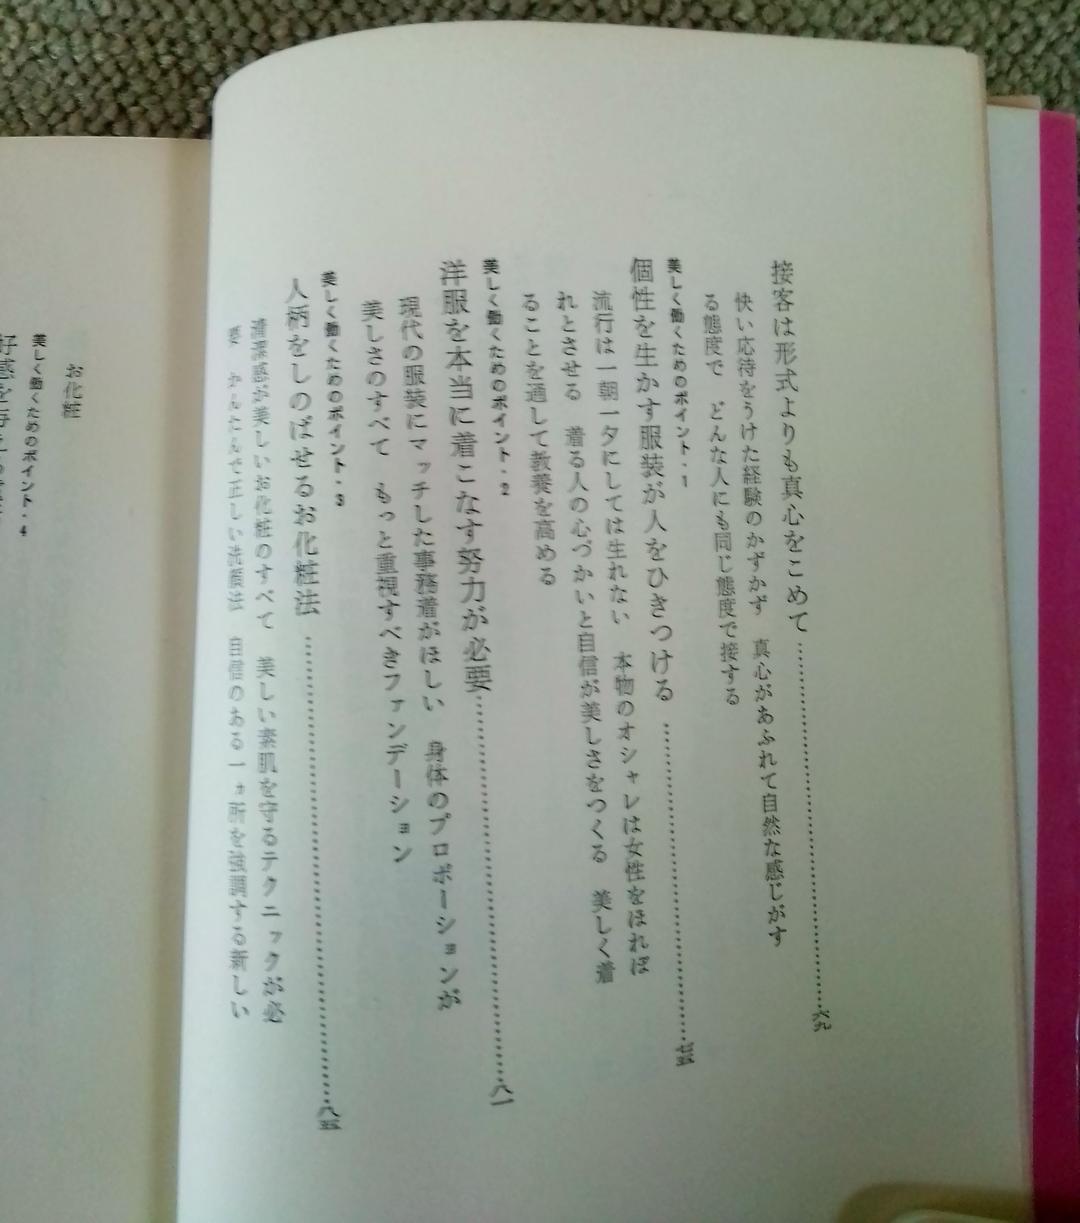 接客は形式よりも真心をこめて……………………六九
快い応待をうけた経験のかずかず　真心があふれて自然な感じがす
る態度で　どんな人にも同じ態度で接する
美しく働くためのポイント・1
個性を生かす服装が人をひきつける……………………七五
流行は一朝一夕にしては生れない　本物のオシャレは女性をほれぼ
れとさせる　着る人の心づかいと自信が美しさをつくる　美しく着
ることを通して教養を高める
美しく働くためのポイント・2
洋服を本当に着こなす努力が必要……………………八一
現代の服装にマッチした事務着がほしい　身体のプロポーションが
美しさのすべて　もっと重視すべきファンデーション
美しく働くためのポイント・3
人柄をしのばせるお化粧法……………………八五
清潔感が美しいお化粧のすべて　美しい素肌を守るテクニックが必
要　かんたんで正しい洗顔法　自信のある一ヵ所を強調する新しい
お化粧
美しく働くためのポイント・4
好感を与える